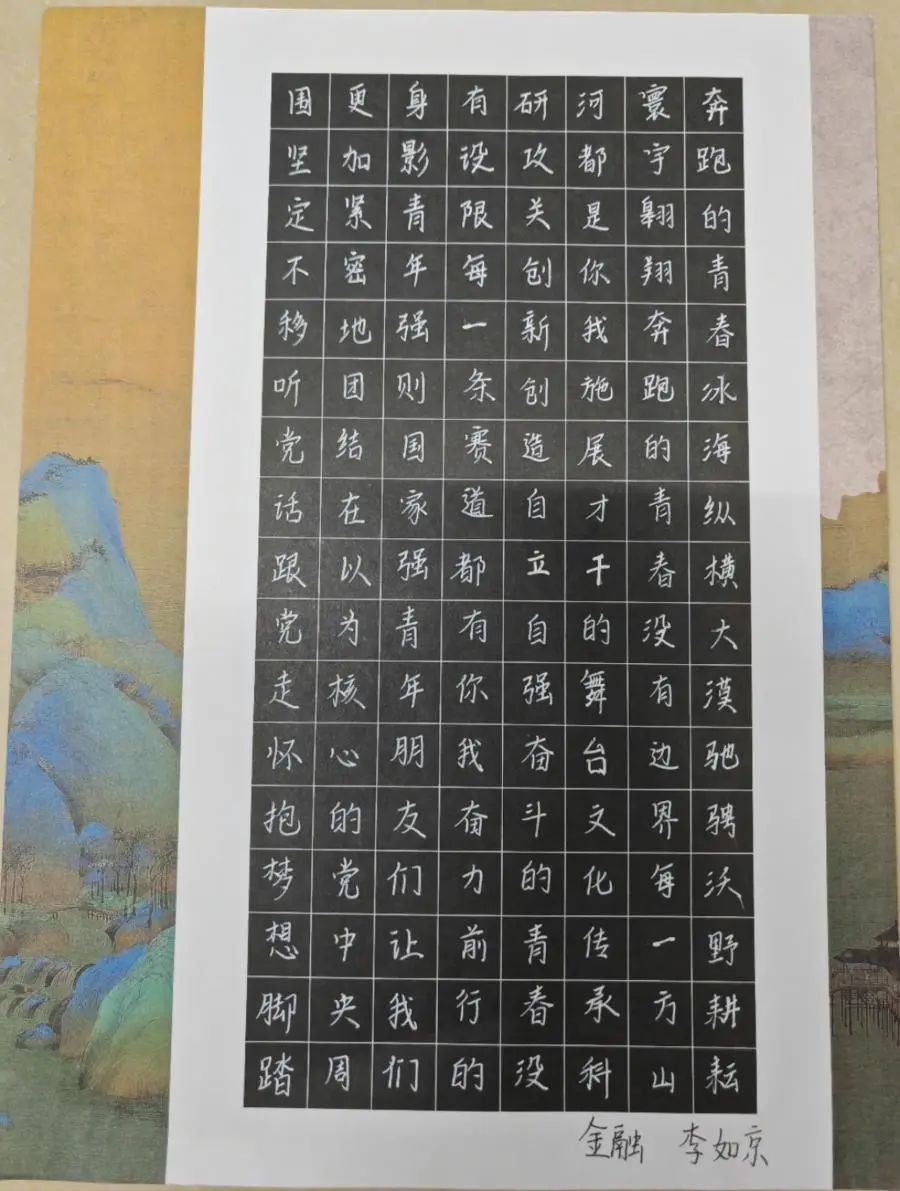 奔跑的青春冰海纵横大漠驰骋沃野耕耘
寰宇翱翔奔跑的青春没有边界每一方山
河都是你我施展才干的舞台文化传承科
研攻关创新创造自立自强奋斗的青春没
有设限每一条赛道都有你我奋力前行的
身影青年强则国家强青年朋友们让我们
更加紧密地团结在以为核心的党中央周
围坚定不移听党话跟党走怀抱梦想脚踏
金融 李如京